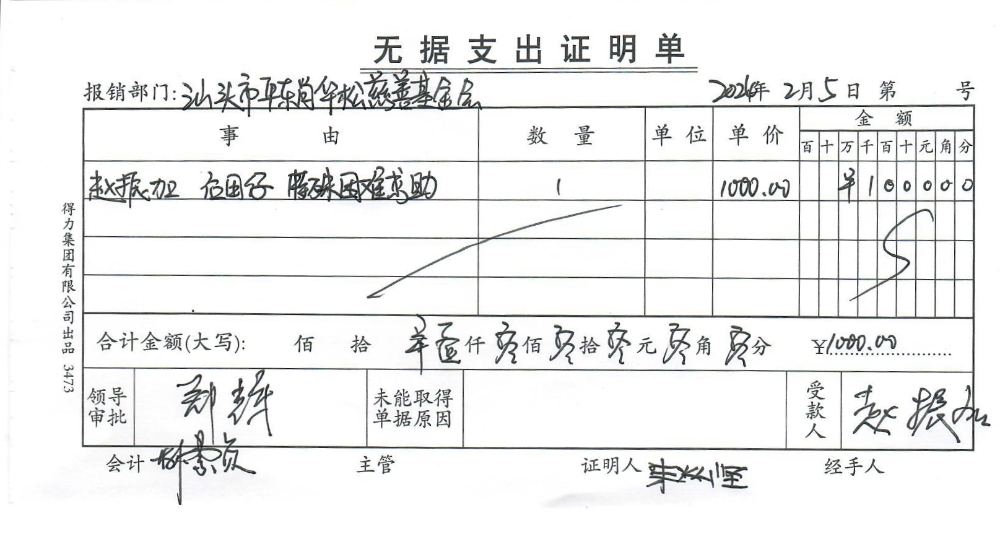 无据支出证明单
报销部门:汕头市平东肖华松慈善基金会 2024年2月5日 第 号
事 由 数 量 单 位 单 价 金 额
百 十 万 千 百 十 元 角 分
赵振加 特殊困难求助 1 1000.00 ¥100000
合计金额(大写): 佰 拾 ¥壹仟零佰零拾零元零角零分 ¥1000.00
领导审批 未能取得单据原因 受款人 赵振加
会计 主管 证明人 经手人
得力集团有限公司出品 3473